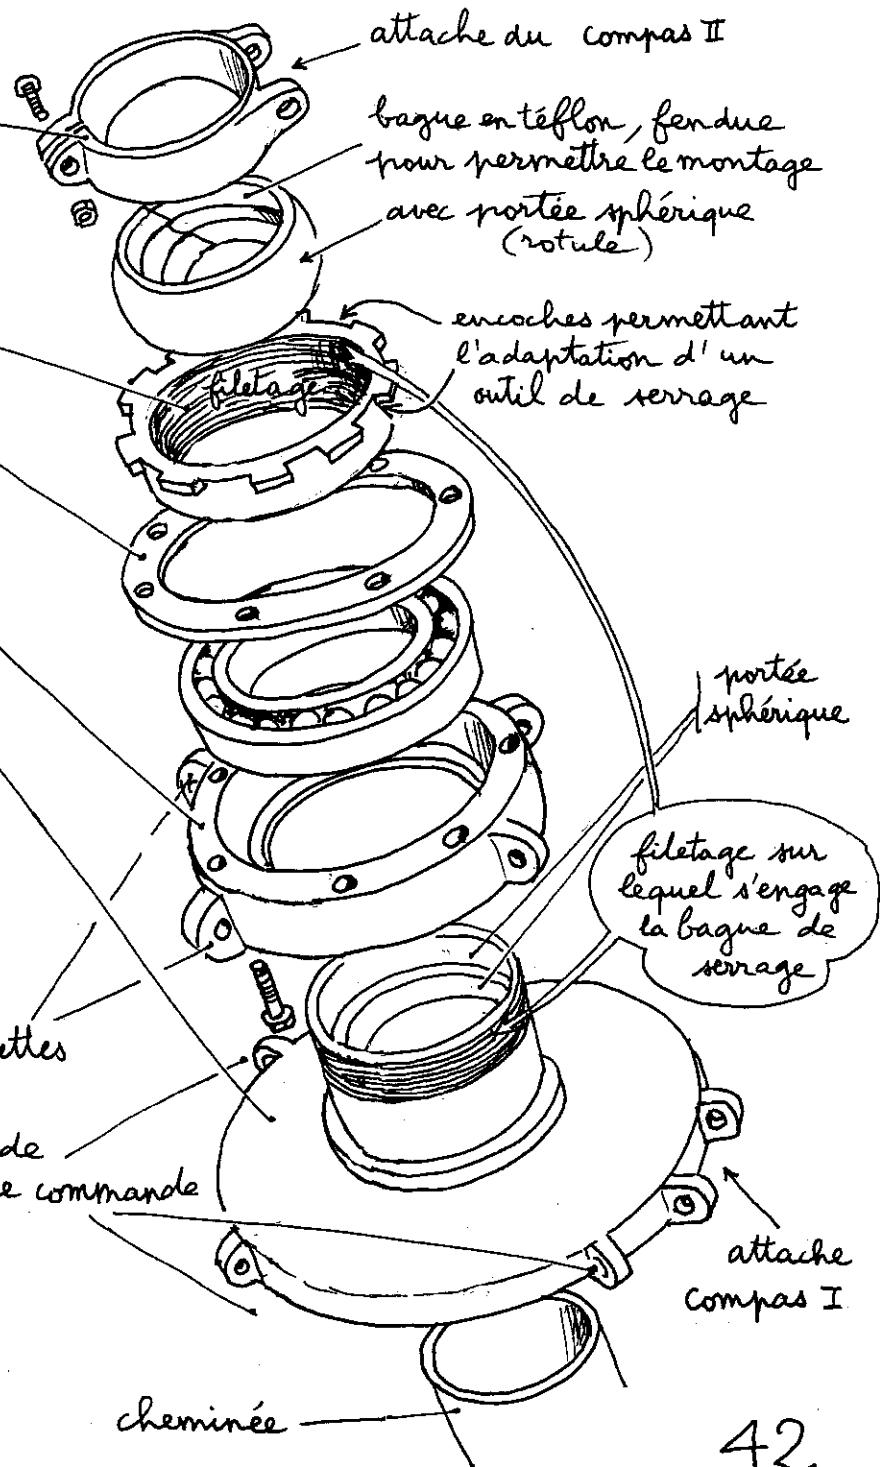 attache du compas II
bague en téflon, fendue
pour permettre le montage
avec portée sphérique
(rotule)
encoches permettant
l'adaptation d'un
outil de serrage
filetage
portée
sphérique
filetage sur
lequel s'engage
la bague de
serrage
ettes
de
e commande
attache
compas I
cheminée
42